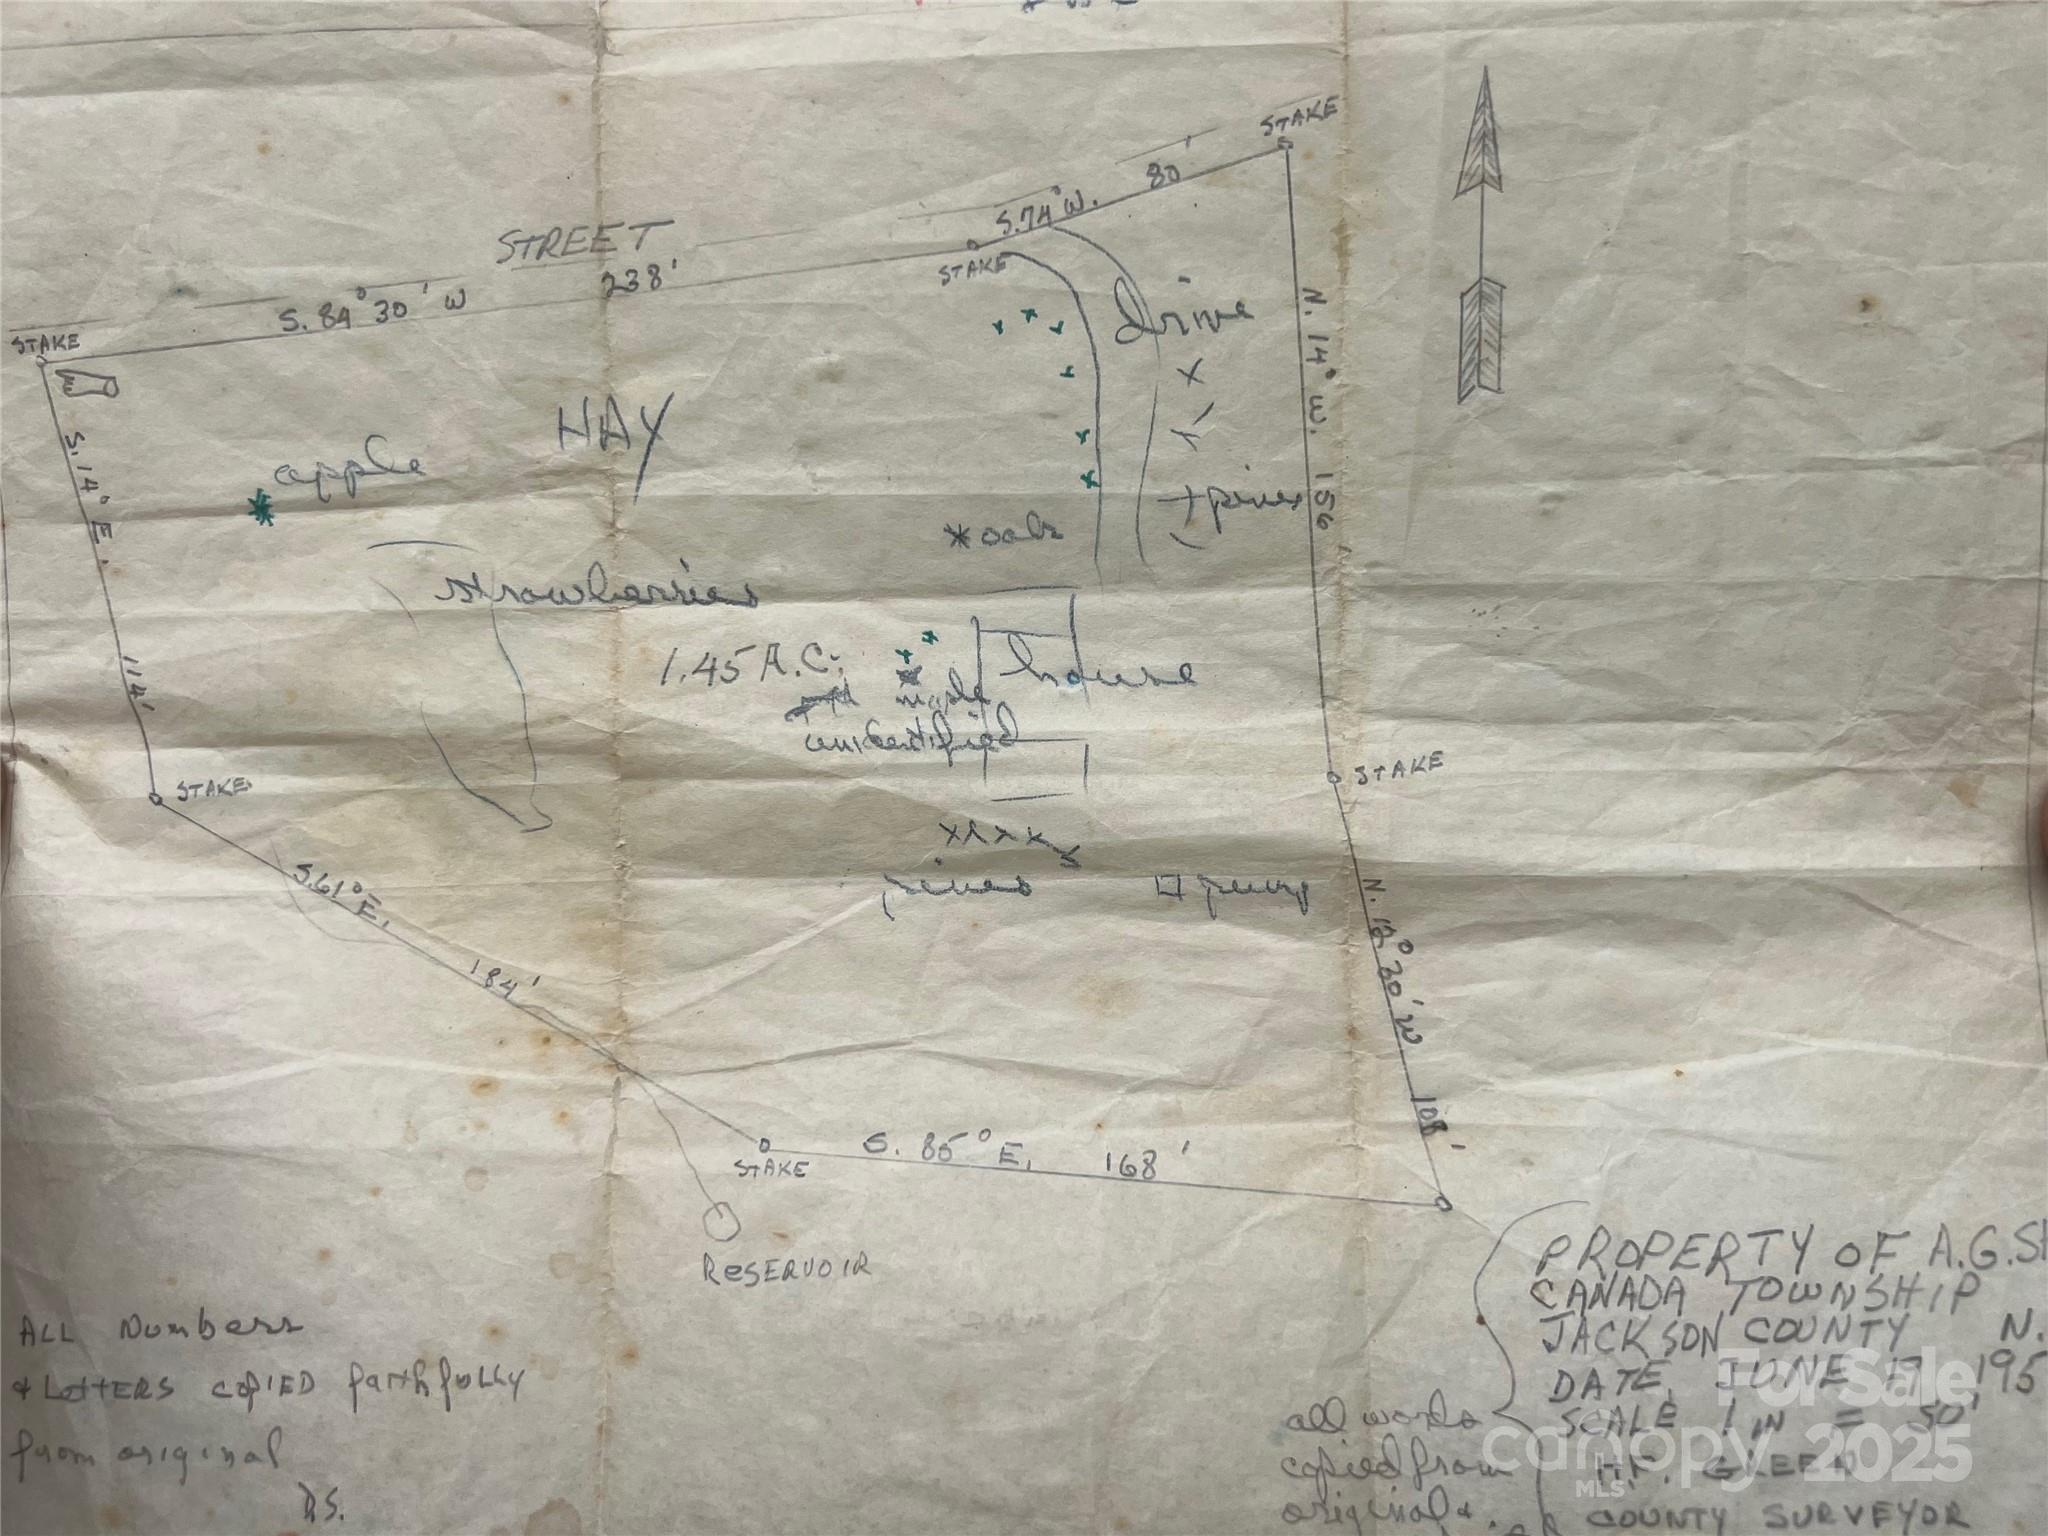 STAKE
80'
S. 74° W.
STREET
STAKE
238'
S. 84° 30' W
STAKE
drive
N. 14° W. 156
HAY
apple
S. 14° E. 114'
pines
oaks
strawberries
1.45 A.C.
house
maple
unidentified
STAKE
STAKE
pines
pump
S. 61° E. 184'
N. 12° 30' W 108'
S. 85° E. 168'
STAKE
RESERVOIR
PROPERTY OF A.G.
CANADA TOWNSHIP
JACKSON COUNTY N.
DATE, JUNE 195
SCALE 1 IN = 50'
H.F. GREEN
COUNTY SURVEYOR
ALL Numbers
& LETTERS copied faithfully
from original
D.S.
all words
copied from
original &
For Sale
canopy 2025
MLS